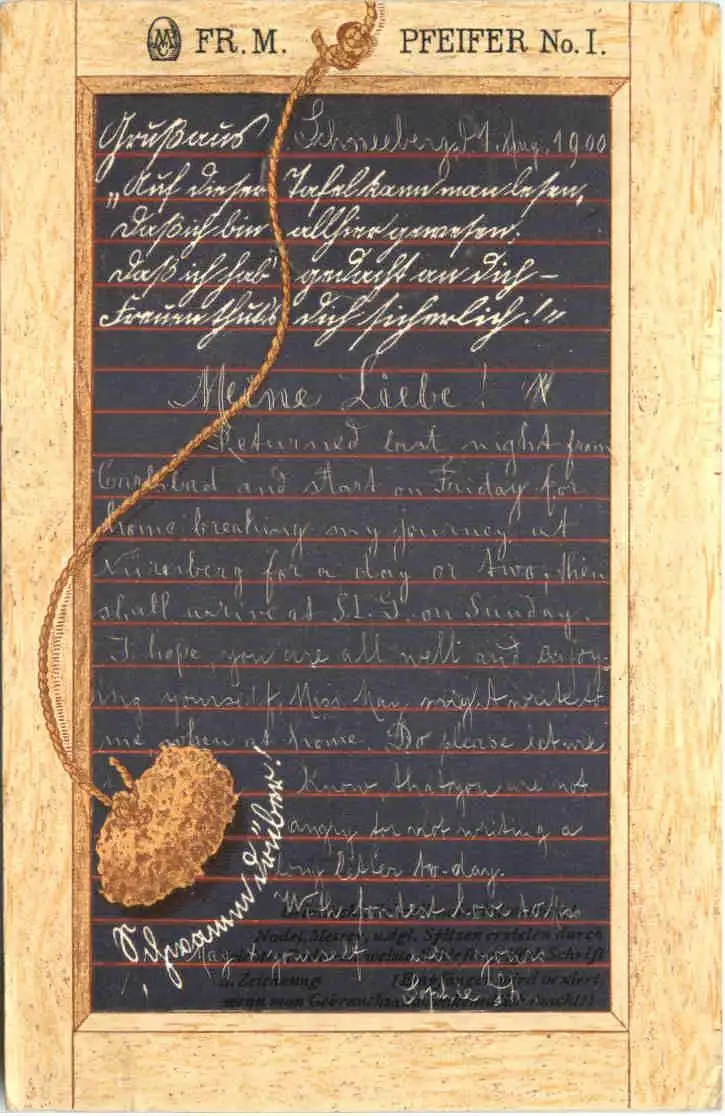 FR. M. PFEIFER No. I.
Gruß aus Schneeberg, d. 1. Aug. 1900
„Auf dieser Tafel kann man lesen,
Daß ich bin allhier gewesen;
Daß ich hab' gedacht an Dich –
Freuen thut's Dich sicherlich!"
Meine Liebe!
Returned last night from
Carlsbad and start on Friday for
home breaking my journey at
Nürenberg for a day or two; then
shall arrive at St. G. on Sunday.
I hope, you are all well and enjoy-
ing yourself. Miss May might write to
me, when at home. Do please let me
know, that you are not
angry for not writing a
long letter to-day.
With fondest love to
May & yourself
Schwamm drüber!
Nadel, Messer, u. dgl. Spitzen erzielen durch
Schrift
u. Zeichnung. (Empfänger wird
wenn man Gebrauchs